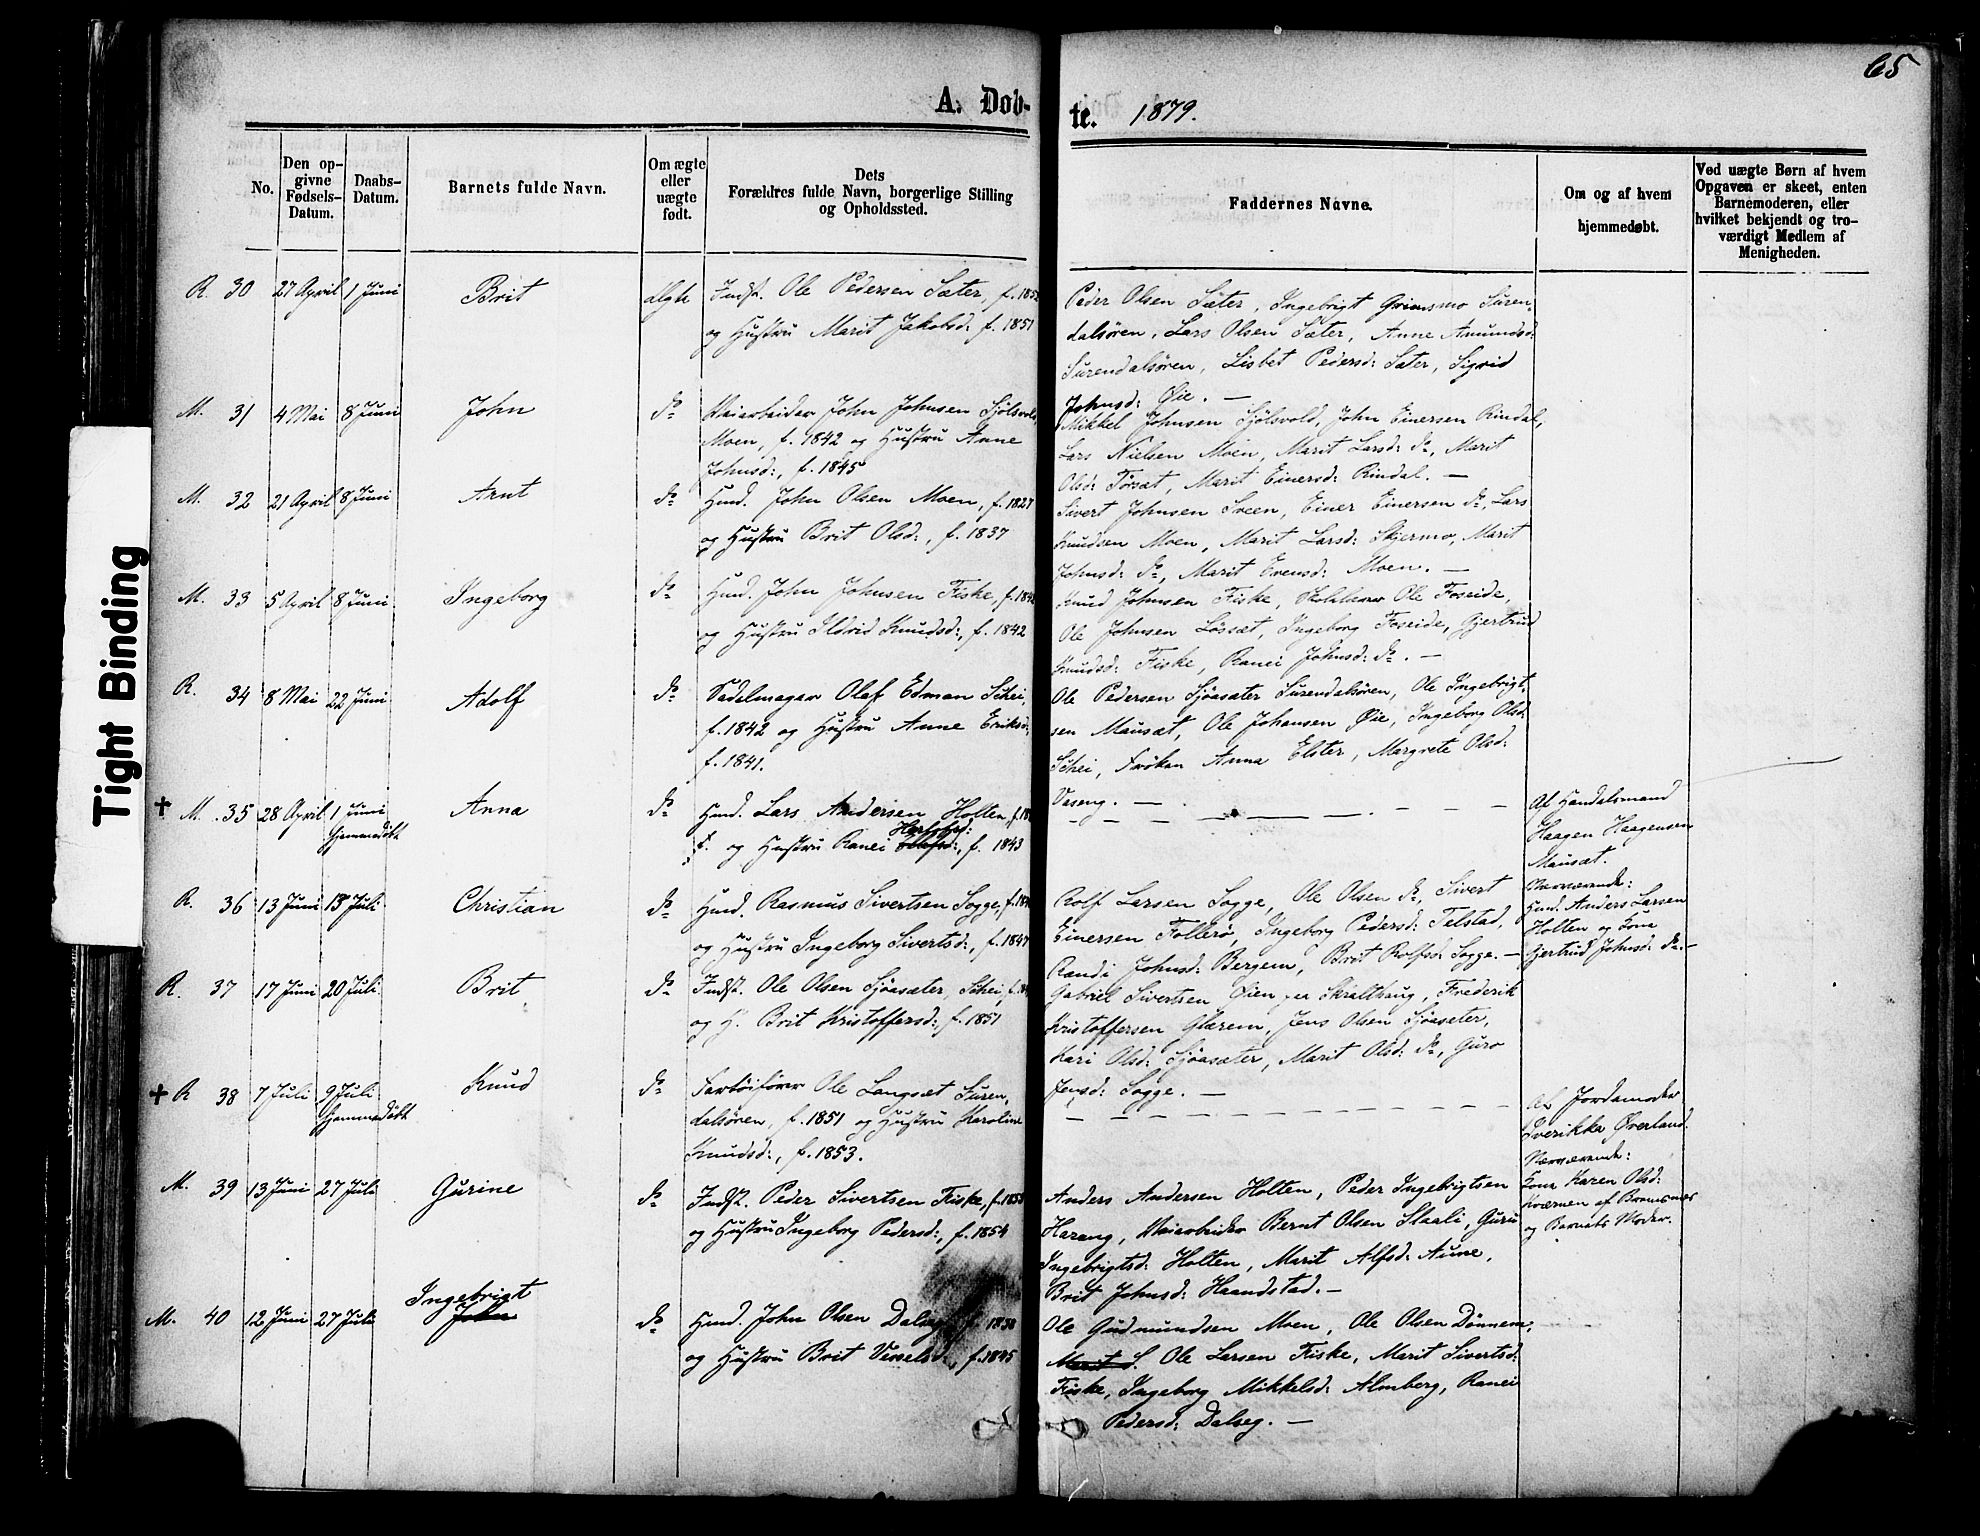 65
A. Døb-
te. 1879.
No.
Den op-
givne
Fødsels-
Datum.
Daabs-
Datum.
Barnets fulde Navn.
Om ægte
eller
uægte
født.
Dets
Forældres fulde Navn, borgerlige Stilling
og Opholdssted.
Faddernes Navne.
Om og af hvem
hjemmedøbt.
Ved uægte Børn af hvem
Opgaven er skeet, enten
Barnemoderen, eller
hvilket bekjendt og tro-
værdigt Medlem af
Menigheden.
R. 30 27 April 1 Juni Brit ægte Indst. Ole Pedersen Sæter, f.
og Hustru Marit Jakobsd: f. 1851
Peder Olsen Sæter, Ingebrigt Grimsmo Suren-
dalsøren, Lars Olsen Sæter, Anne Amundsd:
Surendalsøren, Lisbet Pedersd: Sæter, Sigrid
Johnsd: Øie. —
M. 31 4 Mai 8 Juni John do Veiarbeider John Johnsen Sjølsvold
Moen, f. 1842 og Hustru Anne
Johnsd:, f. 1845
Mikkel Johnsen Sjølsvold, John Einersen Rindal,
Lars Nielsen Moen, Marit Larsd: do, Marit
Olsd: Torsæt, Marit Einersd: Rindal. —
M. 32 21 April 8 Juni Arnt do Gmd. John Olsen Moen, f. 1827
og Hustru Brit Olsd:, f. 1837
Sivert Johnsen Sveen, Einer Einersen do, Lars
Knudsen Moen, Marit Larsd: Skjermo, Marit
Johnsd: do, Marit Evensd: Moen. —
M. 33 5 April 8 Juni Ingeborg do Gmd. John Johnsen Fiske, f.
og Hustru Ildrid Knudsd:, f. 1842
Knud Johnsen Fiske, Skolelærer Ole Foseide,
Ole Johnsen Løssæt, Ingeborg Foseide, Gjertrud
Knudsd: Fiske, Ranei Johnsd: do. —
R. 34 8 Mai 22 Juni Adolf do Sadelmager Olaf Edman Schei,
f. 1842 og Hustru Anne Eriksd:
f. 1841.
Ole Pedersen Sjøasæter Surendalsøren, Ole Ingebrigt-
sen Mausæt, Ole Johansen Øie, Ingeborg Olsd:
Schei, Frøken Anna Elster, Margrete Olsd:
Vaseng. —
† M. 35 28 April 1 Juni Anna do Gmd. Lars Andersen Holten, f.
hjemmedøbt
og Hustru Ranei f. 1843
Af Handelsmand
Haagen Haagensen
Mausæt.
Nærværende:
Gmd. Anders Larsen
Holten og Kone
Gjertrud Johnsd: do.—
R. 36 13 Juni 13 Juli Christian do Gmd. Rasmus Sivertsen Sogge, f.
og Hustru Ingeborg Sivertsd:, f. 1847
Rolf Larsen Sogge, Ole Olsen do, Sivert
Einersen Follerø, Ingeborg Pedersd: Telstad,
Randi Johnsd: Bergem, Brit Rolfsd: Sogge. —
R. 37 17 Juni 20 Juli Brit do Indst. Ole Olsen Sjøasæter, Schei, f.
og H. Brit Kristoffersd:, f. 1851
Gabriel Sivertsen Øien paa Skralthaug, Frederik
Kristoffersen Glærem, Jens Olsen Sjøaseter,
Kari Olsd: Sjøasæter, Marit Olsd: do, Guro
Jensd: Sogge. —
† R 38 7 Juli 9 Juli Knud do Fartøifører Ole Langsæt Suren-
hjemmedøbt
dalsøren, f. 1851 og Hustru Karoline
Knudsd:, f. 1853.
Af Jordemoder
Overland.
Nærværende:
Kone Karen Olsd:
Kværnen af Bremsnes
og Barnets Moder.
M. 39 13 Juni 27 Juli Gurine do Indst. Peder Sivertsen Fiske, f.
og Hustru Ingeborg Pedersd:, f. 1854
Anders Andersen Holten, Peder Ingebrigtsen
Harang, Veiarbeider Bernt Olsen Staali, Guru
Ingebrigtsd: Holten, Marit Alfsd: Aune,
Brit Johnsd: Haandstad. —
Ingebrigt
M. 40 12 Juni 27 Juli John do Gmd. John Olsen Dalseg f. 1838
og Hustru Brit f. 1845
Ole Gudmundsen Moen, Ole Olsen Dønnem,
Marit S. Ole Larsen Fiske, Marit Sivertsd:
Fiske, Ingeborg Mikkelsd: Almberg, Ranei
Pedersd: Dalseg. —
Tight Binding